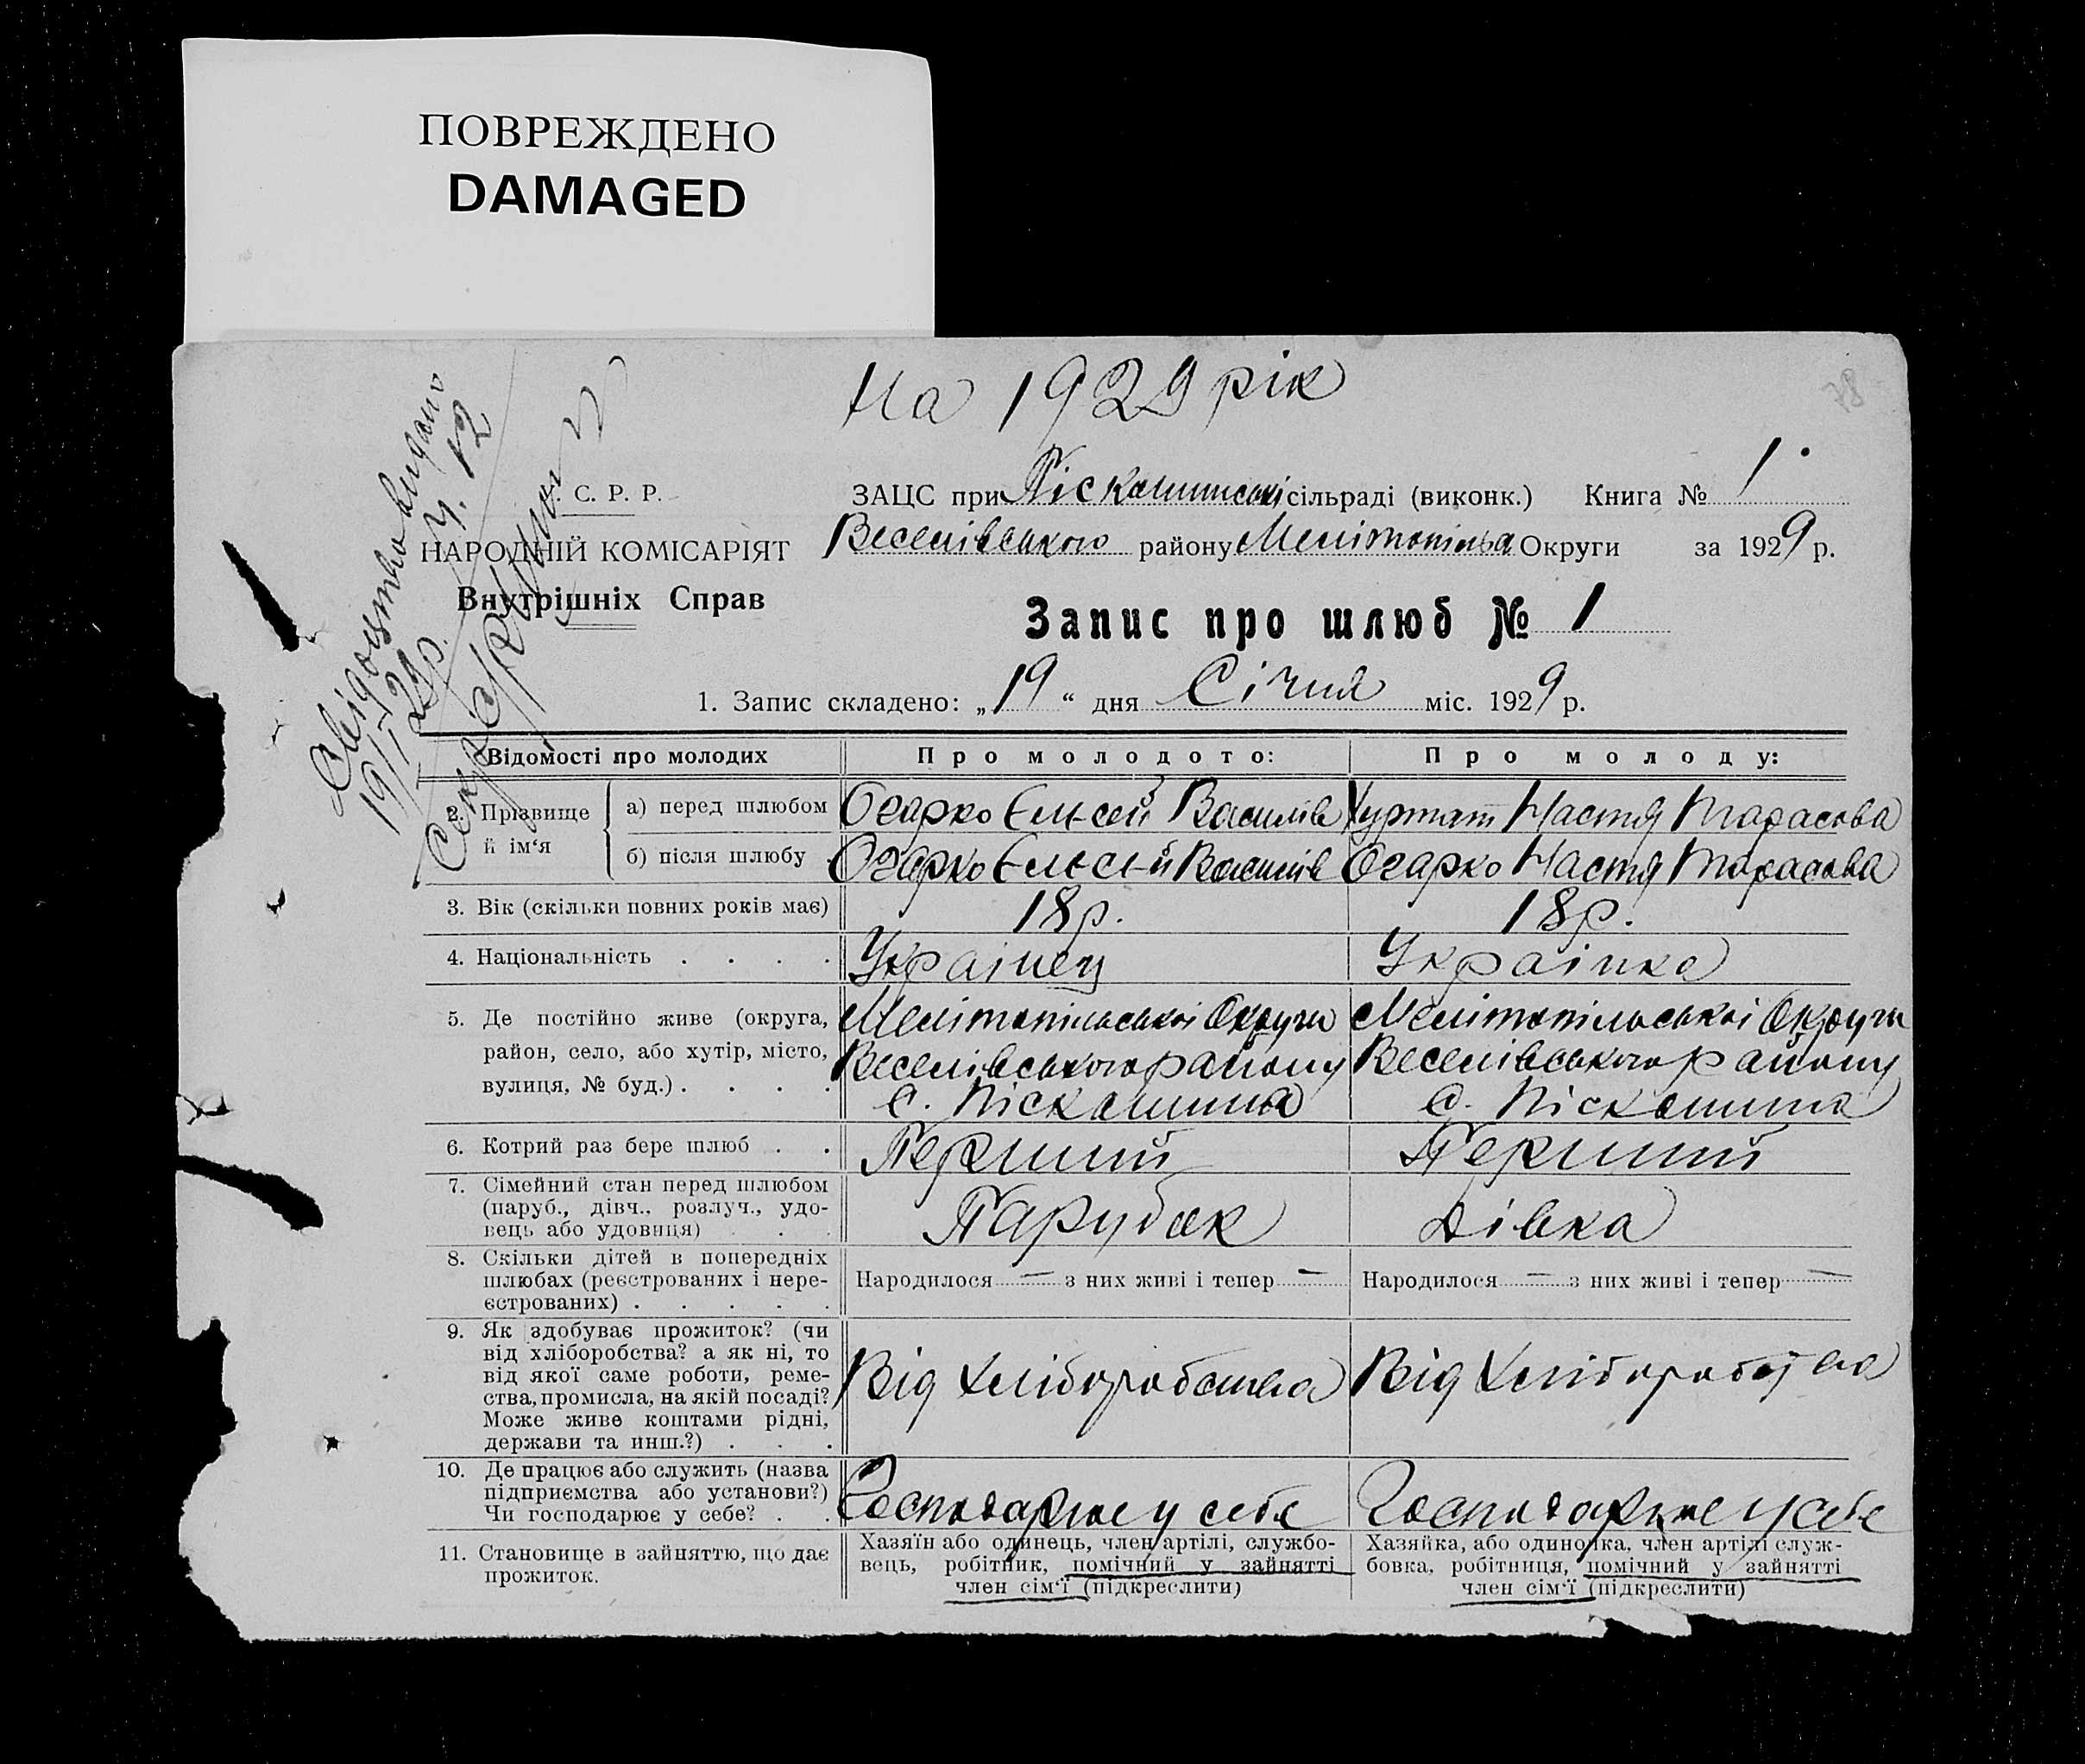 ПОВРЕЖДЕНО
DAMAGED
На 1929 рік
78
Свідоцтво видано
19/I 29р. Ч. 12
С. Р. Р.
НАРОДНІЙ КОМІСАРІЯТ
Внутрішніх Справ
ЗАЦС при Піскошинські сільраді (виконк.) Книга № 1
Веселівського району Мелітопільва Округи за 1929 р.
Запис про шлюб № 1
1. Запис складено: „19“ дня Січня міс. 1929 р.
Відомості про молодих
Про молодого:
Про молоду:
2. Прізвище й ім‘я
а) перед шлюбом
Огарко Єльсей Василів
Хуртат Настя Тарасова
б) після шлюбу
Огарко Єльсей Василів
Огарко Настя Тарасова
3. Вік (скільки повних років має)
18р.
18р.
4. Національність . . . .
Українец
Українка
5. Де постійно живе (округа,
район, село, або хутір, місто,
вулиця, № буд.) . . . .
Мелітопільської Округи
Веселівського району
с. Піскошина
Мелітопільської Округи
Веселівського району
с. Піскошина
6. Котрий раз бере шлюб . .
Перший
Перший
7. Сімейний стан перед шлюбом
(паруб., дівч., розлуч., удо-
вець або удовиця) . . .
Парубок
Дівка
8. Скільки дітей в попередніх
шлюбах (реєстрованих і нере-
єстрованих) . . . . .
Народилося — з них живі і тепер —
Народилося — з них живі і тепер —
9. Як здобуває прожиток? (чи
від хліборобства? а як ні, то
від якої саме роботи, реме-
ства, промисла, на якій посаді?
Може живе коштами рідні,
держави та инш.?) . . .
Від Хліборобства
Від Хліборобства
10. Де працює або служить (назва
підприємства або установи?)
Чи господарює у себе? . .
Господарює у себе
Господарює у себе
11. Становище в зайняттю, що дає
прожиток.
Хазяїн або одинець, член артілі, службо-
вець, робітник, помічний у зайнятті
член сім‘ї (підкреслити)
Хазяйка, або одиночка, член артілі служ-
бовка, робітниця, помічний у зайнятті
член сім‘ї (підкреслити)